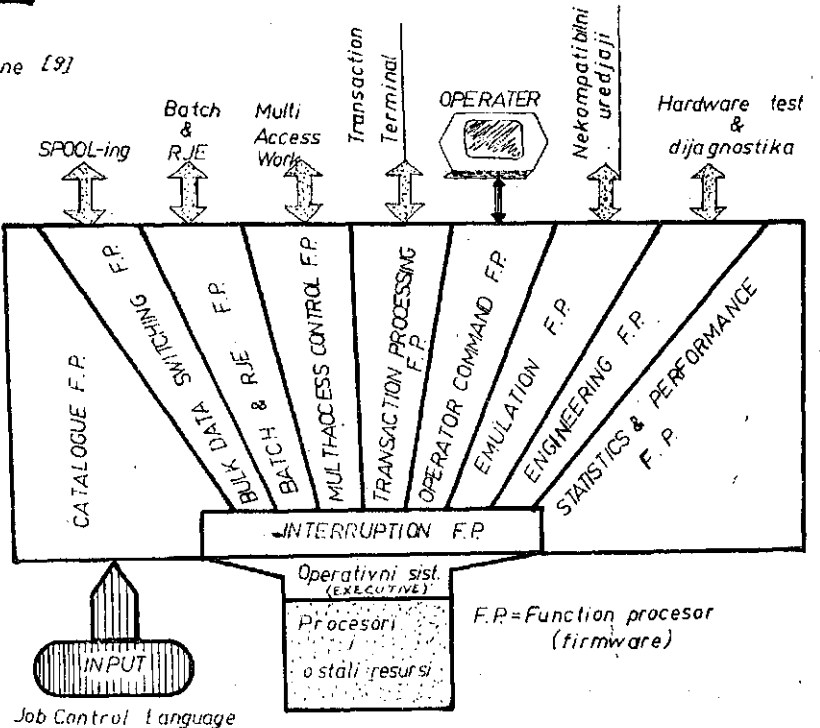 ne [9]
SPOOL-ing
Batch
&
RJE
Multi
Access
Work
Transaction
Terminal
OPERATER
Nekompatibilni
uredjaji
Hardware test
&
dijagnostika
CATALOGUE F.P.
BULK DATA SWITCHING F.P.
BATCH & RJE F.P.
MULTIACCESS CONTROL F.P.
TRANSACTION PROCESSING
F.P.
OPERATOR COMMAND F.P.
EMULATION F.P.
ENGINEERING F.P.
STATISTICS & PERFORMANCE
F.P.
INTERRUPTION F.P.
Operativni sist.
(EXECUTIVE)
Procesori
i
ostali resursi
F.P.=Function procesor
(firmware)
INPUT
Job Control Language